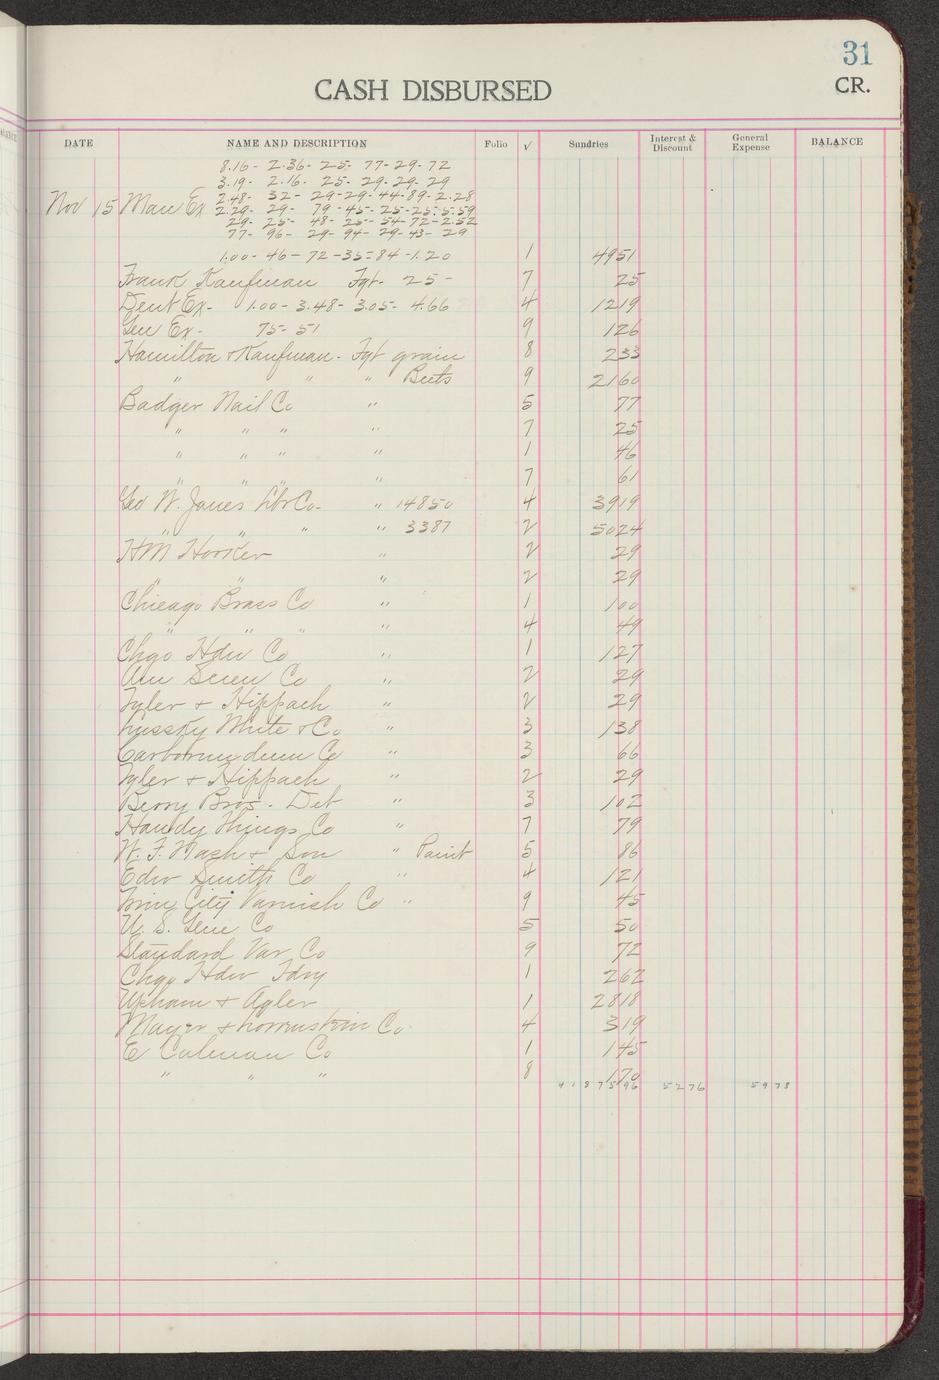 31
CASH DISBURSED
CR.
DATE NAME AND DESCRIPTION Folio √ Sundries Interest & Discount General Expense BALANCE
8.16- 2.36- 25- 77-29-72
3.19- 2.16- 25- 29-29-29
2.48- 32- 29-29-44-89-2.28
Nov 15 Man Ex 2.29- 29- 79-45-25-25-5.59
29- 25- 48- 25- 54-72-2.52
77- 96- 29- 94- 29-43- 29
1.00-46-72-35=84-1.20 1 4951
Frank Kaufman Fgt- 25- 7 25
Dent Ex- 1.00-3.48-3.05-4.66 4 1219
Gen Ex- 75-51 9 126
Hamilton & Kaufman- Fgt grain 8 233
" " " Beets 9 2160
Badger Nail Co " 5 77
" " " " 7 25
" " " " 1 46
7 61
Geo W. Jones Lbr Co- " 14850 4 3919
" " " " 3387 2 5024
HM Hooker " 2 29
" " " 2 29
Chicago Brass Co " 1 100
" " " " 4 49
Chgo Hdw Co " 1 127
Am Screw Co " 2 29
Tyler & Hippach " 2 29
Lussky White & Co " 3 138
Carborundum Co " 3 66
Tyler & Hippach " 2 29
Berry Bros- Det " 3 102
Handy Things Co " 7 79
W. F. Nash & Son " Paint 5 86
Edw Smith Co " 4 121
Twin City Varnish Co " 9 45
U. S. Glue Co 5 50
Standard Var Co 9 72
Chgo Hdw Fdry 1 262
Upham & Agler 1 2818
Mayer & Co 4 319
E Colman Co 1 145
" " " 8 170
4187596 5276 5978